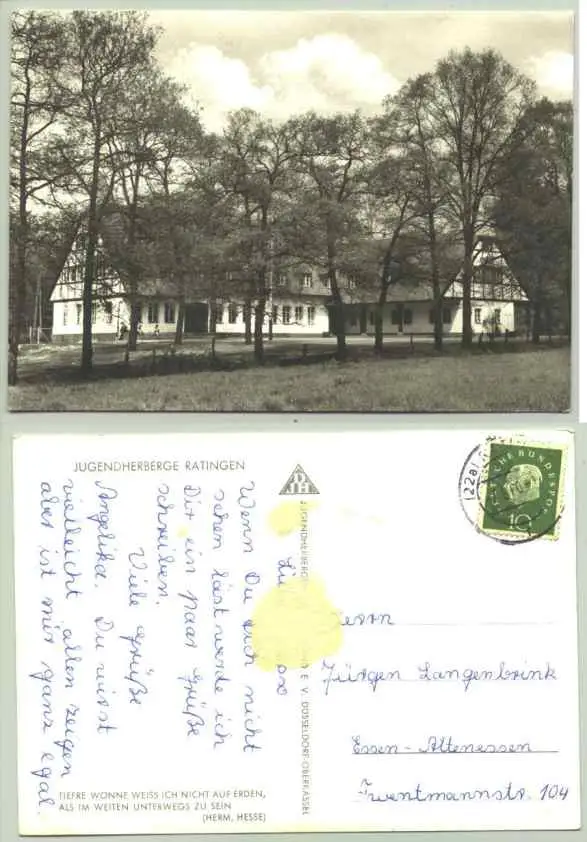 JUGENDHERBERGE RATINGEN
DJH
Wenn Du Dich nicht
sehen läst werde ich
Dir ein paar Grüße
schreiben.
Viele Grüße
Angelika. Du wirst
vielleicht allen zeigen
aber ist mir ganz egal.
TIEFRE WONNE WEISS ICH NICHT AUF ERDEN,
ALS IM WEITEN UNTERWEGS ZU SEIN
(HERM, HESSE)
JUGENDHERBERGE
E. V. DÜSSELDORF-OBERKASSEL
(22a)
DEUTSCHE BUNDESPOST
10
Herrn
Jürgen Langenbrink
Essen-Altenessen
104